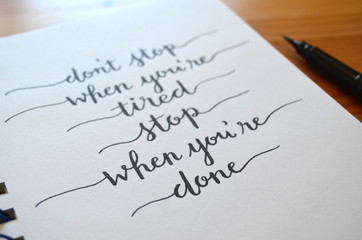 don't stop
when you're
tired
stop
when you're
done